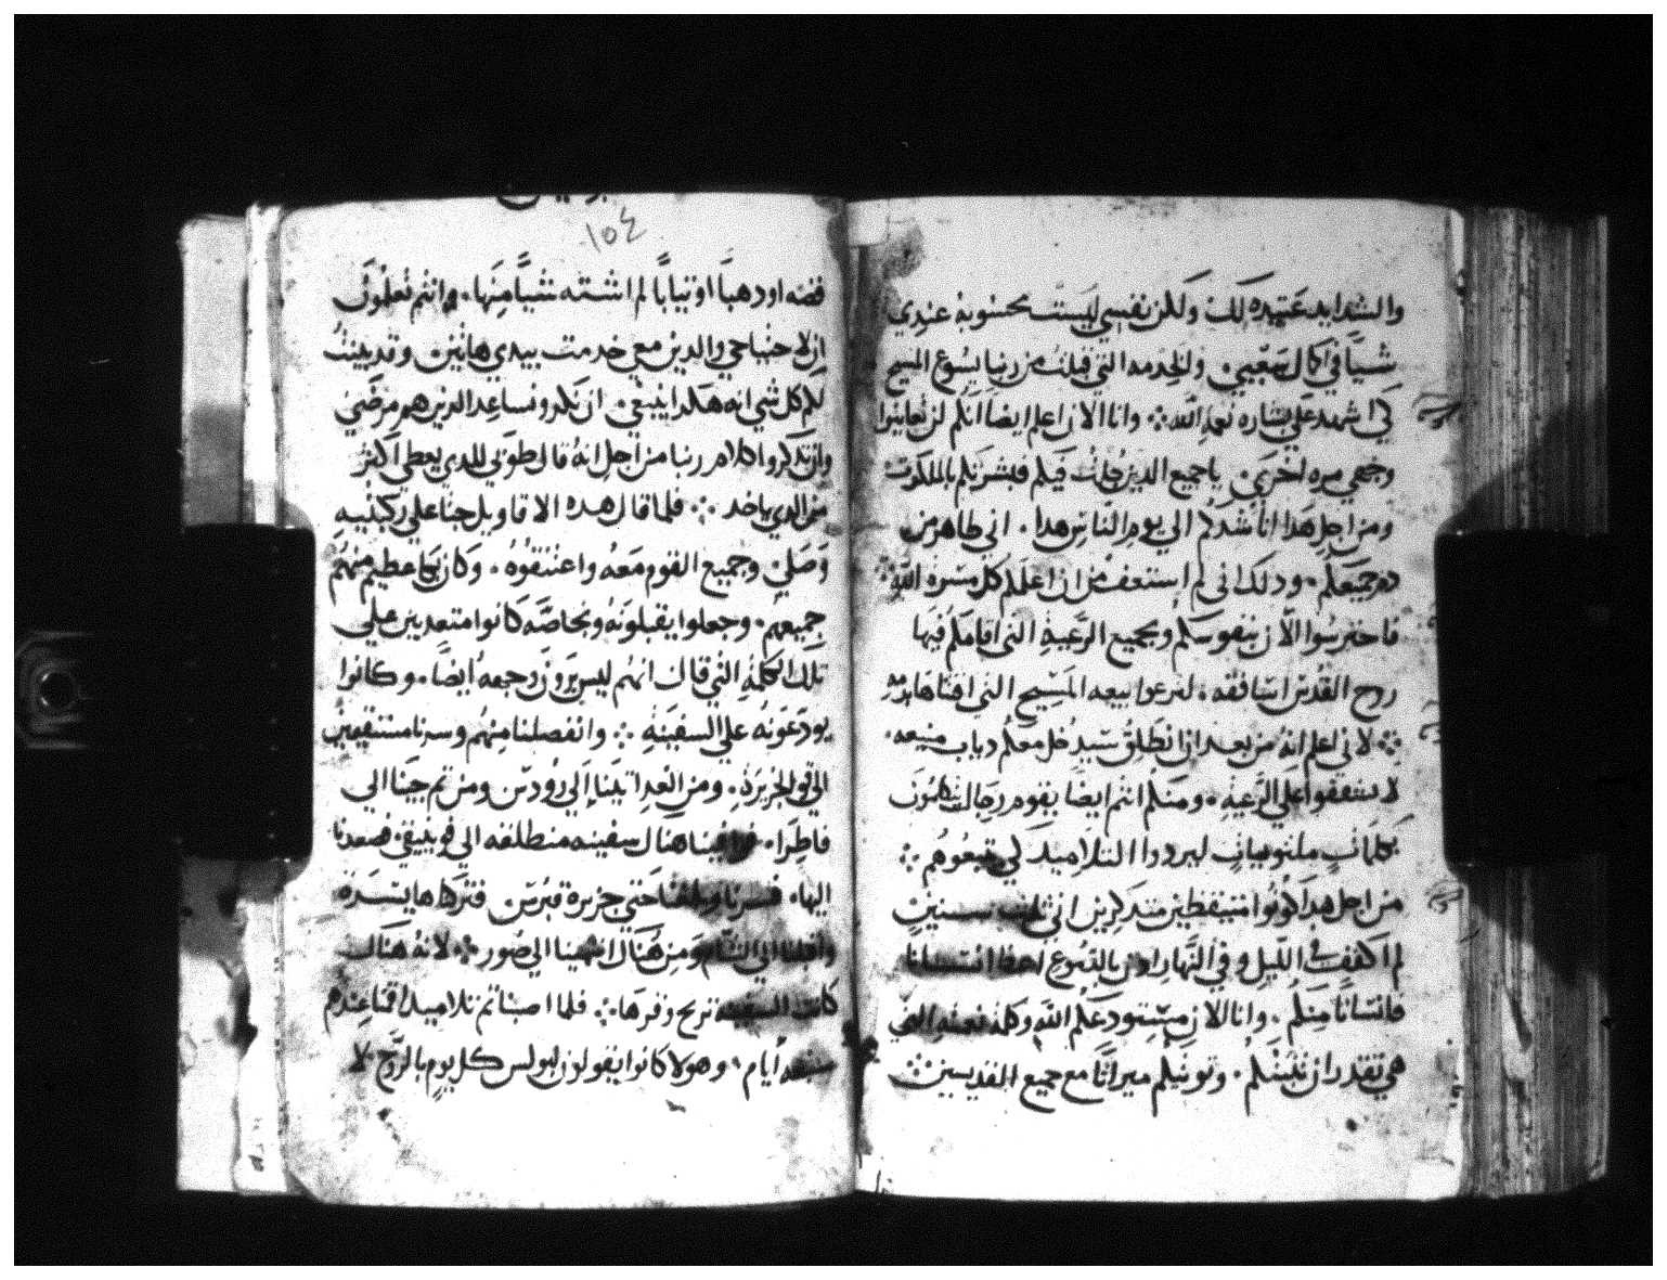 والشدايد عتيده لك ولكن نفسي ليست محسوبة عندي
شيا في اكمال سعيي. والخدمه التي قبلت من ربنا يسوع المسيح
كي اشهد علي بشاره نعمة الله. وانا الان اعلم ايضا انكم لن تعاينوا
وجهي مره اخري. ياجميع الدين جلت فيكم فبشرتكم بالملكوت
ومن اجل هدا اناشدكم الي يوم الناس هدا. اني طاهر من
دم جميعكم. ودلك اني لم استعف من ان اعلمكم كل مسره الله
فاحترسوا الان بنفوسكم وبجميع الرعية التي اقامكم فيها
روح القدس اساقفه. لترعوا بيعه المسيح التي اقتناها بدمه
لاني اعلم انه من بعد ان انطلق سيدخل معكم دياب منيعه.
لا يشفقوا علي الرعيه. ومنكم انتم ايضا يقوم رجال يتكلمون
بكلمات ملتويات ليردوا التلاميد كي يتبعوهم
من اجل هدا كونوا متيقظين متدكرين اني ثلث سنين
لم اكفف في الليل وفي النهار اد بالدموع اعظ انسانا
فانسانا منكم. وانا الان مستودعكم الله وكلمة نعمته التي
هي تقدر ان تبنيكم. وتوتيكم ميراثا مع جميع القديسين
١٥٤
فضه اودهبا اوثيابا لم اشته شيا منها. وانتم تعلمون
ان لاحتياجي والدين معي خدمت بيدي هاتين. وقد بينت
لكم كل شي انه هكدا ينبغي. ان نكد ونساعد الدين هم مرضي
وان تدكروا كلام ربنا من اجل انه قال طوبي للدي يعطي اكثر
من الدي ياخد. فلما قال هده الاقاويل جثا علي ركبتيه
وصلي. وجميع القوم معه واعتنقوه. وكان بكا عظيم منهم
جميعهم. وجعلوا يقبلونه وبخاصه كانوا متعديين علي
تلك الكلمة التي قال انهم ليس يرون وجهه ايضا. وكانوا
يودعونه علي السفينه. وانفصلنا منهم وسرنا مستقيمين
الي قو الجزيرة. ومن الغد اتينا الي رودس ومن ثم جينا الي
فاطرا. فوافينا هناك سفينه منطلقه الي فونيقي فصعدنا
اليها. فسرنا وبلغنا حتي جزيرة قبرس فتركناها يسرة
واقبلنا الي الشام ومن هناك انتهينا الي صور. لانه هناك
كانت السفينه تريح وقرها. فلما اصبنا ثم تلاميد اقمنا عندهم
سبعه ايام. وهولا كانوا يقولون لبولس كل يوم بالروح لا